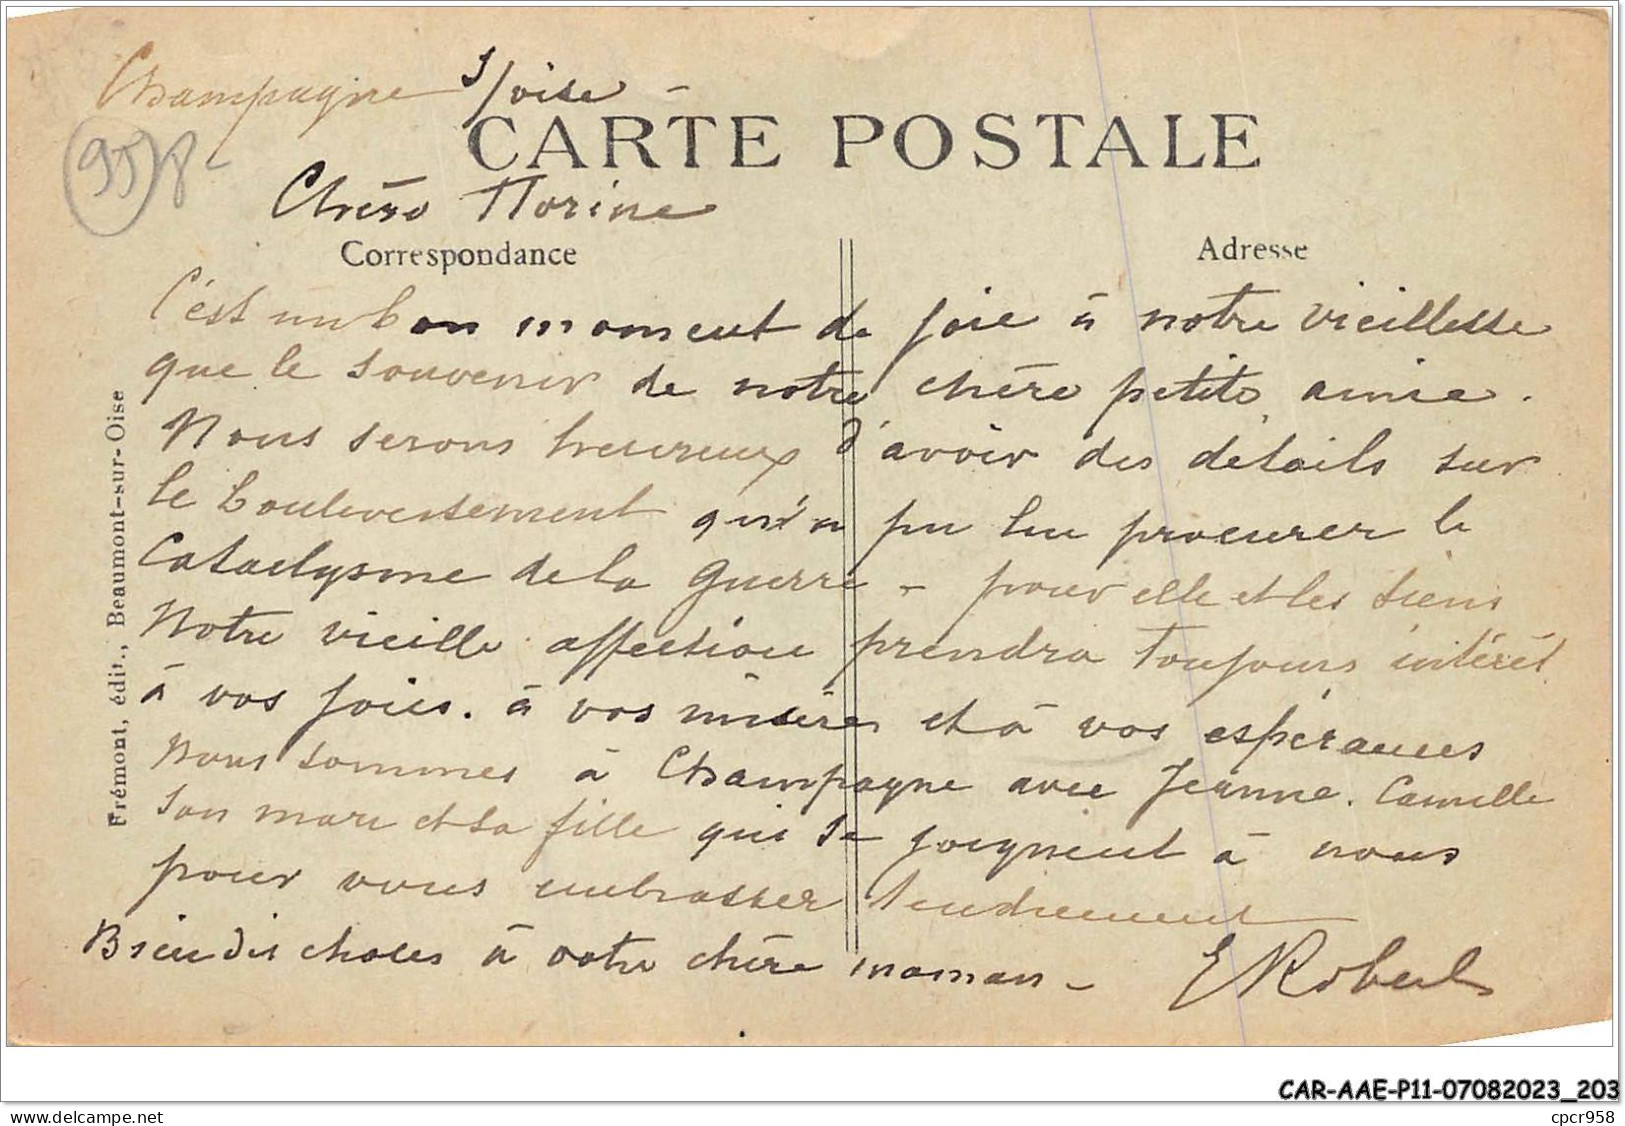 Champagne s/oise -
95 8-
CARTE POSTALE
Chère Norine
Correspondance
Adresse
C'est un bon moment de joie à notre vieillesse
que le souvenir de notre chère petite amie.
Nous serons heureux d'avoir des détails sur
le bouleversement qu'a pu lui procurer le
Cataclysme de la Guerre - pour elle et les siens
Notre vieille affection prendra toujours intérêt
à vos joies. à vos misères et à vos espérances
Nous sommes à Champagne avec Jeanne. Camille
son mari et sa fille qui se joignent à nous
pour vous embrasser tendrement
Bien dis choses à votre chère maman - E Robert
Frémont, édit., Beaumont-sur-Oise
CAR-AAE-P11-07082023_203
www.delcampe.net
cpcr958